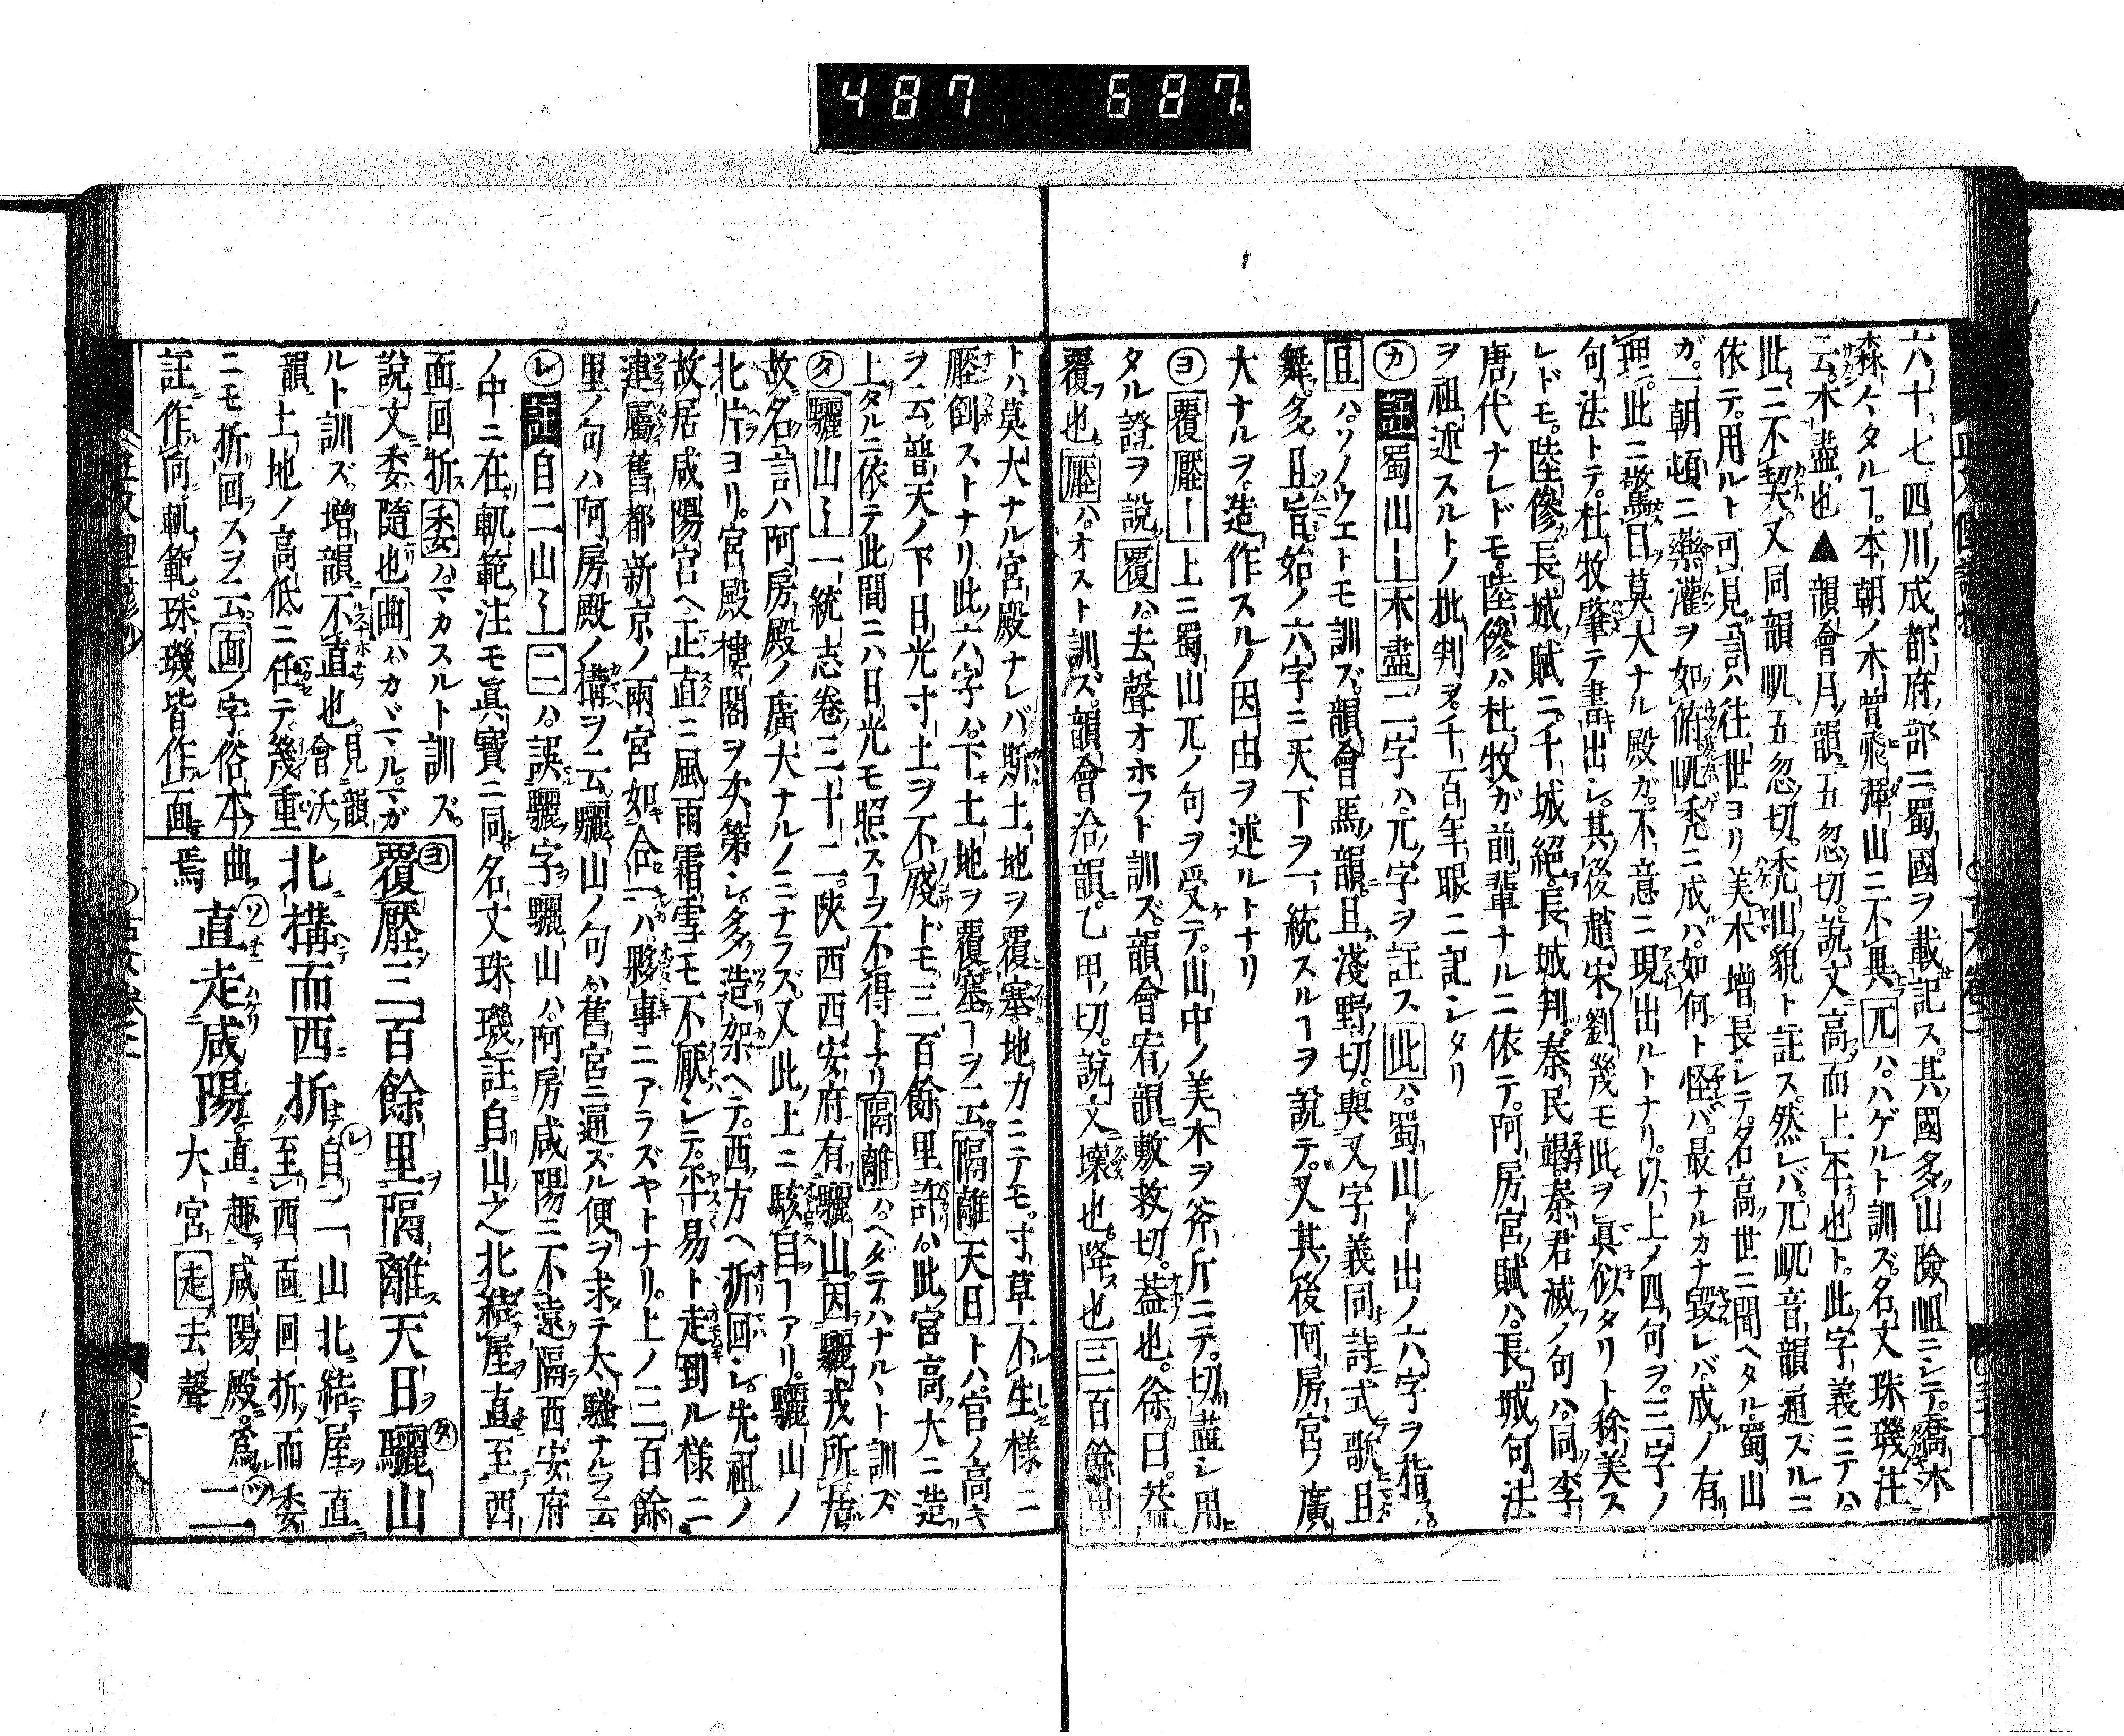 487 687
六十七四川成都府部ニ蜀國ヲ載記ス其國多山險岨ニシテ喬木
森々タルヿ本朝ノ木曾飛彈山ニ不異兀ハハゲルト訓ズ名文珠璣注
云木盡也▲韻會月韻五忽切說文高而上平也ト此字義ニテハ
此ニ不契又同韻㞾五忽切禿山貌ト註ス然レバ兀㞾音韻通ズルニ
依テ用ルト可見言ハ往世ヨリ美木增長シテ名高世ニ聞ヘタル蜀山
ガ一朝頓ニ藥灌ヲ如俯㞾禿ニ成ハ如何ト怪バ最ナルカナ毀レバ成ノ有
理此ニ驚目莫大ナル殿ガ不意ニ現出ルトナリ以上ノ四句ヲ三字ノ
句法トテ杜牧肇テ書出シ其後趙宋劉幾モ此ヲ眞似タリト徐美ス
レドモ陸傪長城賦ニ千城絕長城判秦民竭秦君滅ノ句ハ同李
唐代ナレドモ陸傪ハ杜牧ガ前輩ナルニ依テ阿房宮賦ハ長城句法
ヲ祖述スルトノ批判ヲ千百年眼ニ記シタリ
カ 註蜀山ー木盡二字ハ兀字ヲ註ス此ハ蜀山ー出ノ六字ヲ指
且ハソノウエトモ訓ズ韻會馬韻且淺野切與又字義同詩式歌且
舞多且旨始ノ六字ニ天下ヲ一統スルヿヲ說テ又其後阿房宮ノ廣
大ナルヲ造作スルノ因由ヲ述ルトナリ
ヨ 覆壓ー上ニ蜀山兀ノ句ヲ受テ山中ノ美木ヲ斧斤ニテ切盡シ用
タル證ヲ說覆ハ去聲オホフト訓ズ韻會宥韻敷救切蓋也徐曰蓋
覆也壓ハオスト訓ズ韻會洽韻乙甲切說文壞也降也三百餘里
トハ莫大ナル宮殿ナレバ斯土地ヲ覆塞地カニテモ寸草不生樣ニ
壓倒ストナリ此六字ハ下モ土地ヲ覆塞ヿヲ云隔離天日トハ宮ノ高キ
ヲ云普天ノ下日光寸土ヲ不殘トモ三百餘里許ハ此宮高大ニ造
上タルニ依テ此間ニハ日光モ照スヿヲ不得トナリ隔離ハヘダテハナルヽト訓ズ
タ 驪山ー一統志卷三十二陝西西安府有驪山因驪戎所居
故名言ハ阿房殿ノ廣大ナルノミナラズ又此上ニ駭目ヿアリ驪山ノ
北片ヨリ宮殿樓閣ヲ次第シ多造架ヘテ西方ヘ折回シ先祖ノ
故居咸陽宮ヘ正直ニ風雨霜雪モ不厭シテ平易ト走到ル樣ニ
連屬舊都新京ノ兩宮如合一ハ夥事ニアラズヤトナリ上ノ三百餘
里ノ句ハ阿房殿ノ構ヲ云驪山ノ句ハ舊宮ニ通ズル便ヲ求テ太騷ナルヲ云
レ 註自二山ー二ハ誤驪字驪山ハ阿房咸陽ニ不遠隔西安府
ノ中ニ在軌範注モ眞寶ニ同名文珠璣註自山之北結屋直至西
面回折委ハマカスルト訓ズ
說文委隨也曲ハカヾマルマガ
ルト訓ズ增韻不直也見韻會沃
韻土地ノ高低ニ任テ幾重
ニモ折回スヲ云面ノ字俗本
註作向軌範珠璣皆作面
ヨ覆壓三百餘里隔離天日タ驪山
北構而西折レ自二山北結屋直至西面回折而委
曲焉ソ直走咸陽直趣咸陽殿爲大宮走去聲ツ二